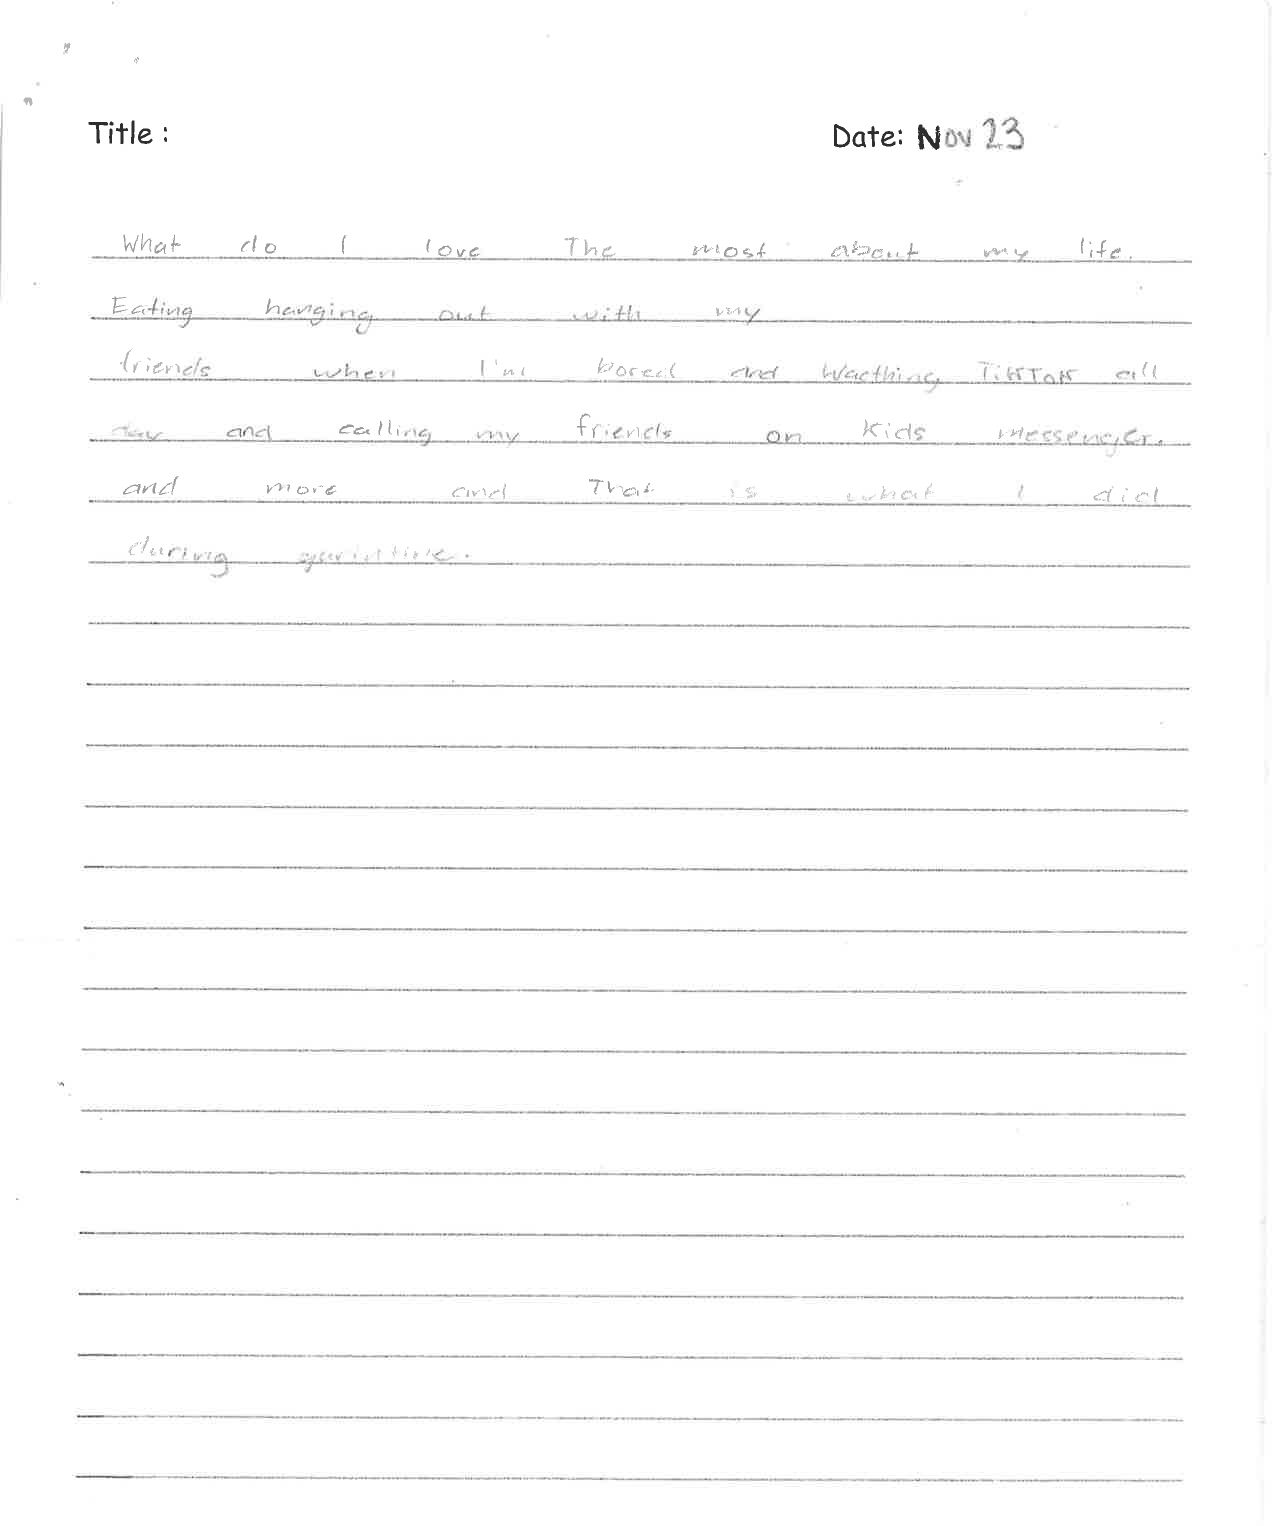 Title :
Date: Nov 23
What do I love The most about my life.
Eating hanging out with my
friends when I'm bored and Wacthing TikTok all
day and calling my friends on Kids messenger.
and more and That is what I did
during